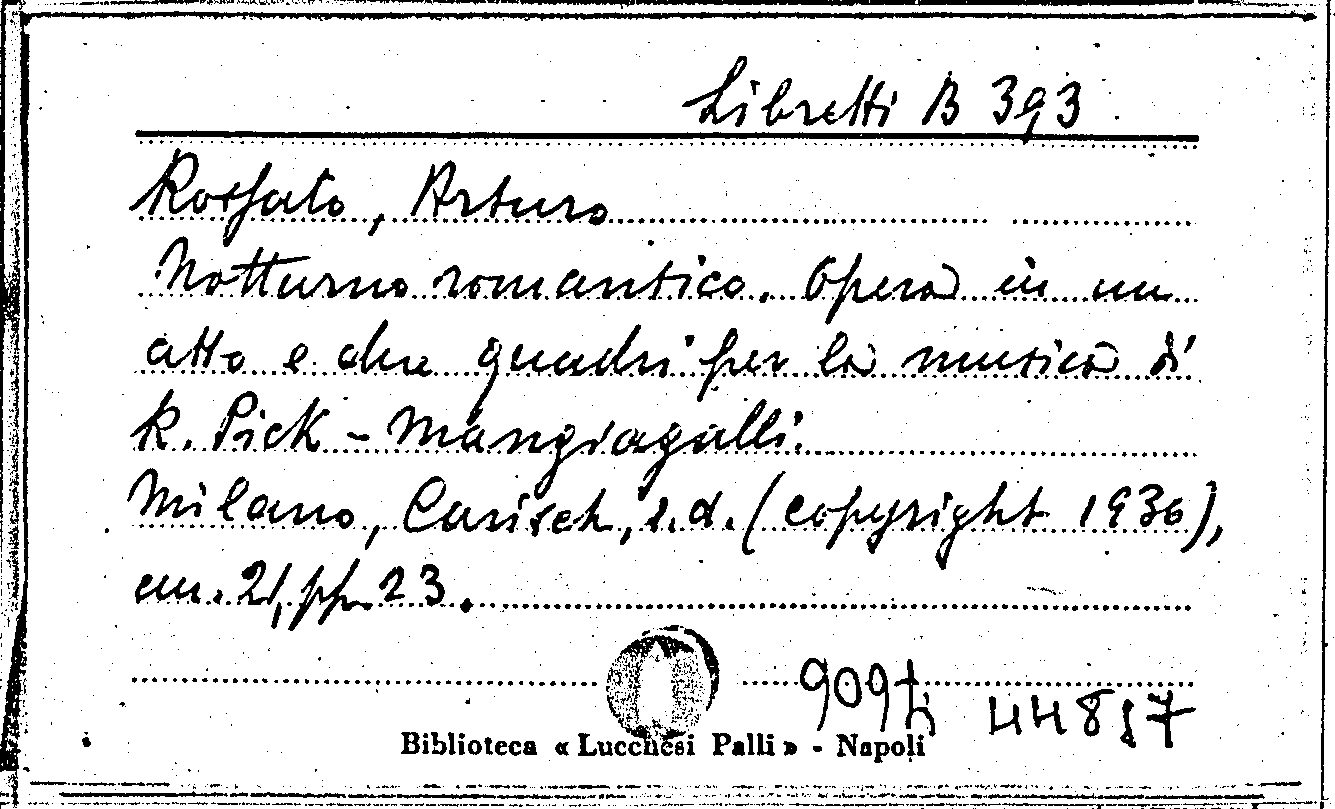 Libretti B 393
Rossato, Arturo
Notturno romantico. Opera in un
atto e due quadri per la musica di
R. Pick-Mangiagalli.
Milano, Carisch, s.d. (copyright 1936),
cm. 21, pp. 23.
44817
Biblioteca « Lucchesi Palli » - Napoli